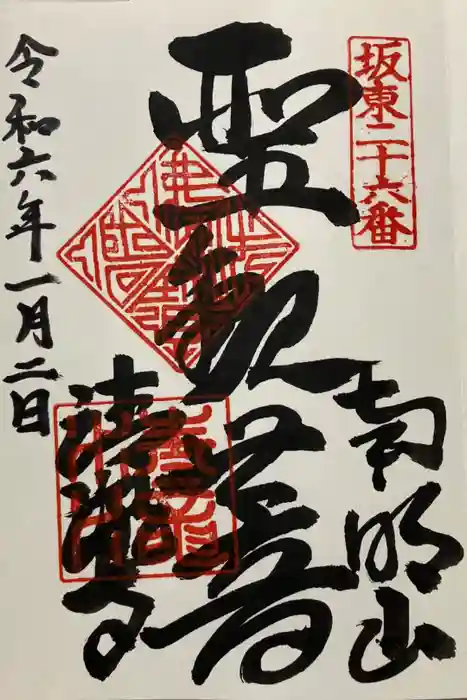 坂東二十六番
南明山
聖観音
清瀧寺
令和六年一月二日